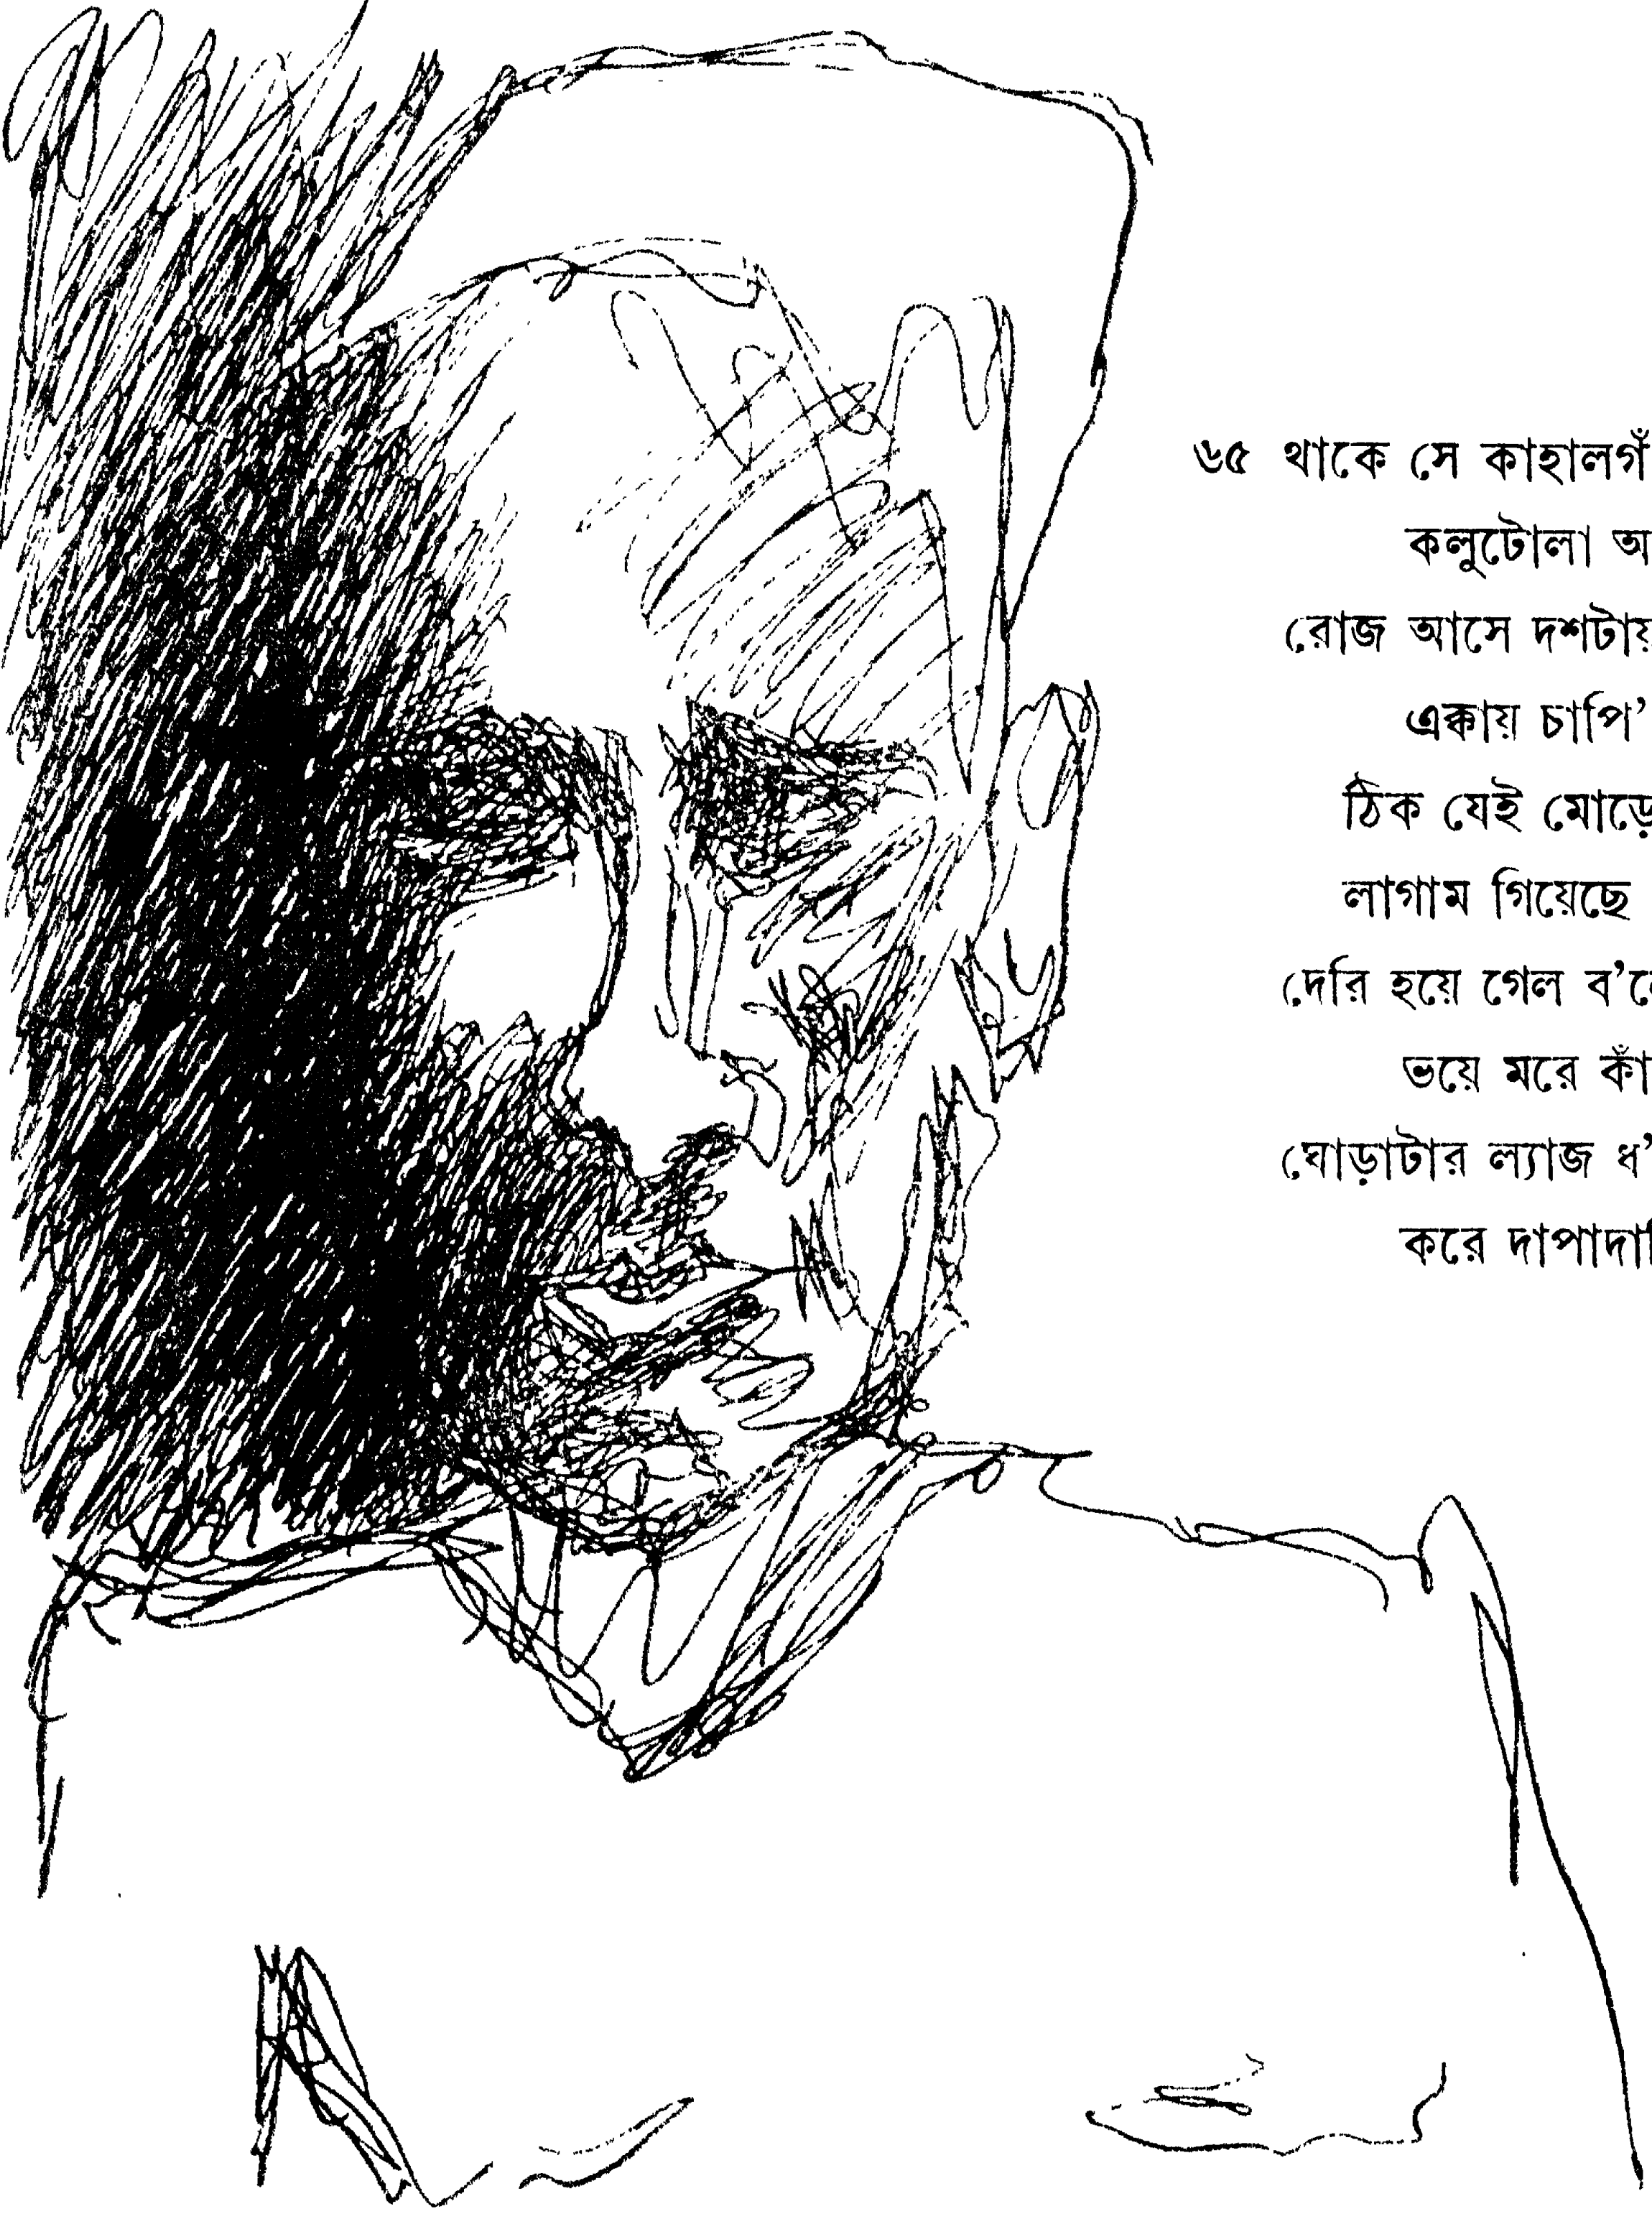 ৬৫ থাকে সে কাহালগাঁ
কলুটোলা অ
রোজ আসে দশটায়
এক্কায় চাপি'
ঠিক যেই মোড়ে
লাগাম গিয়েছে
দেরি হয়ে গেল ব'লে
ভয়ে মরে কাঁ
ঘোড়াটার ল্যাজ ধ'
করে দাপাদাপি